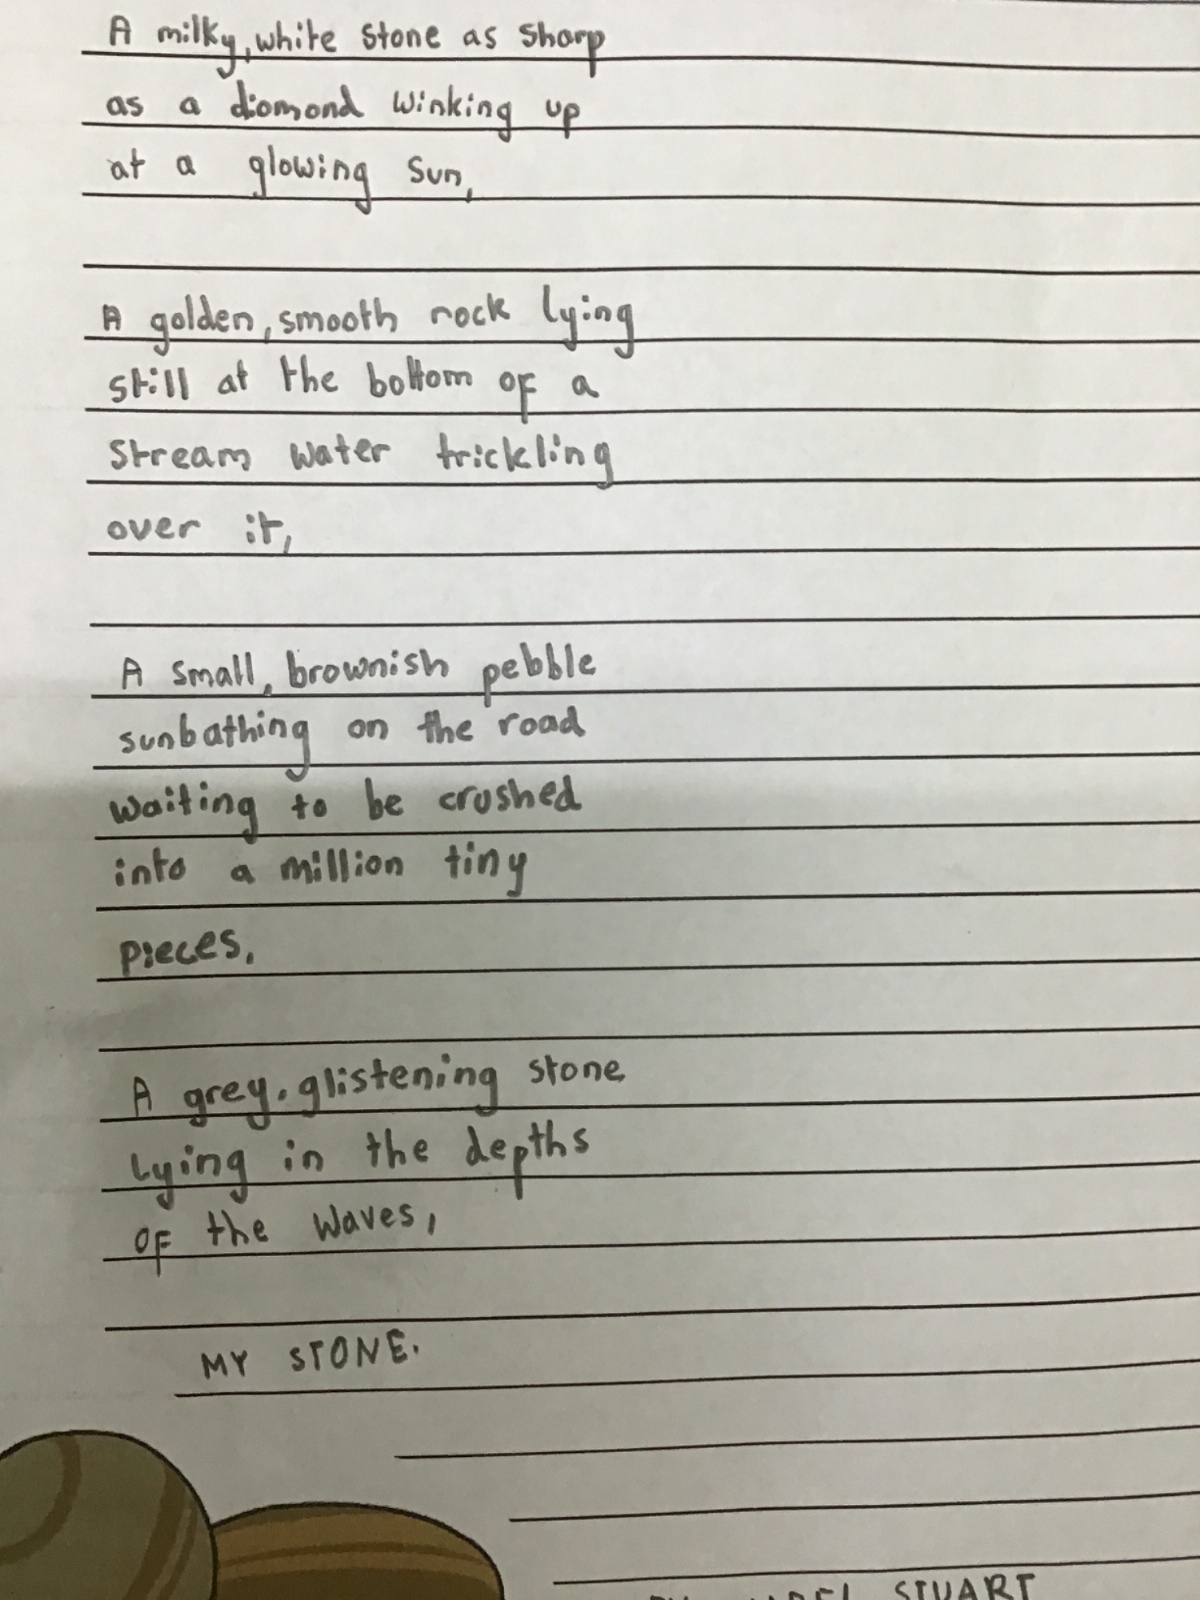 A milky, white stone as sharp
as a diomond winking up
at a glowing sun,
A golden, smooth rock lying
still at the bottom of a
stream water trickling
over it,
A small, brownish pebble
sunbathing on the road
waiting to be crushed
into a million tiny
pieces,
A grey, glistening stone
lying in the depths
of the waves,
MY STONE.
STUART